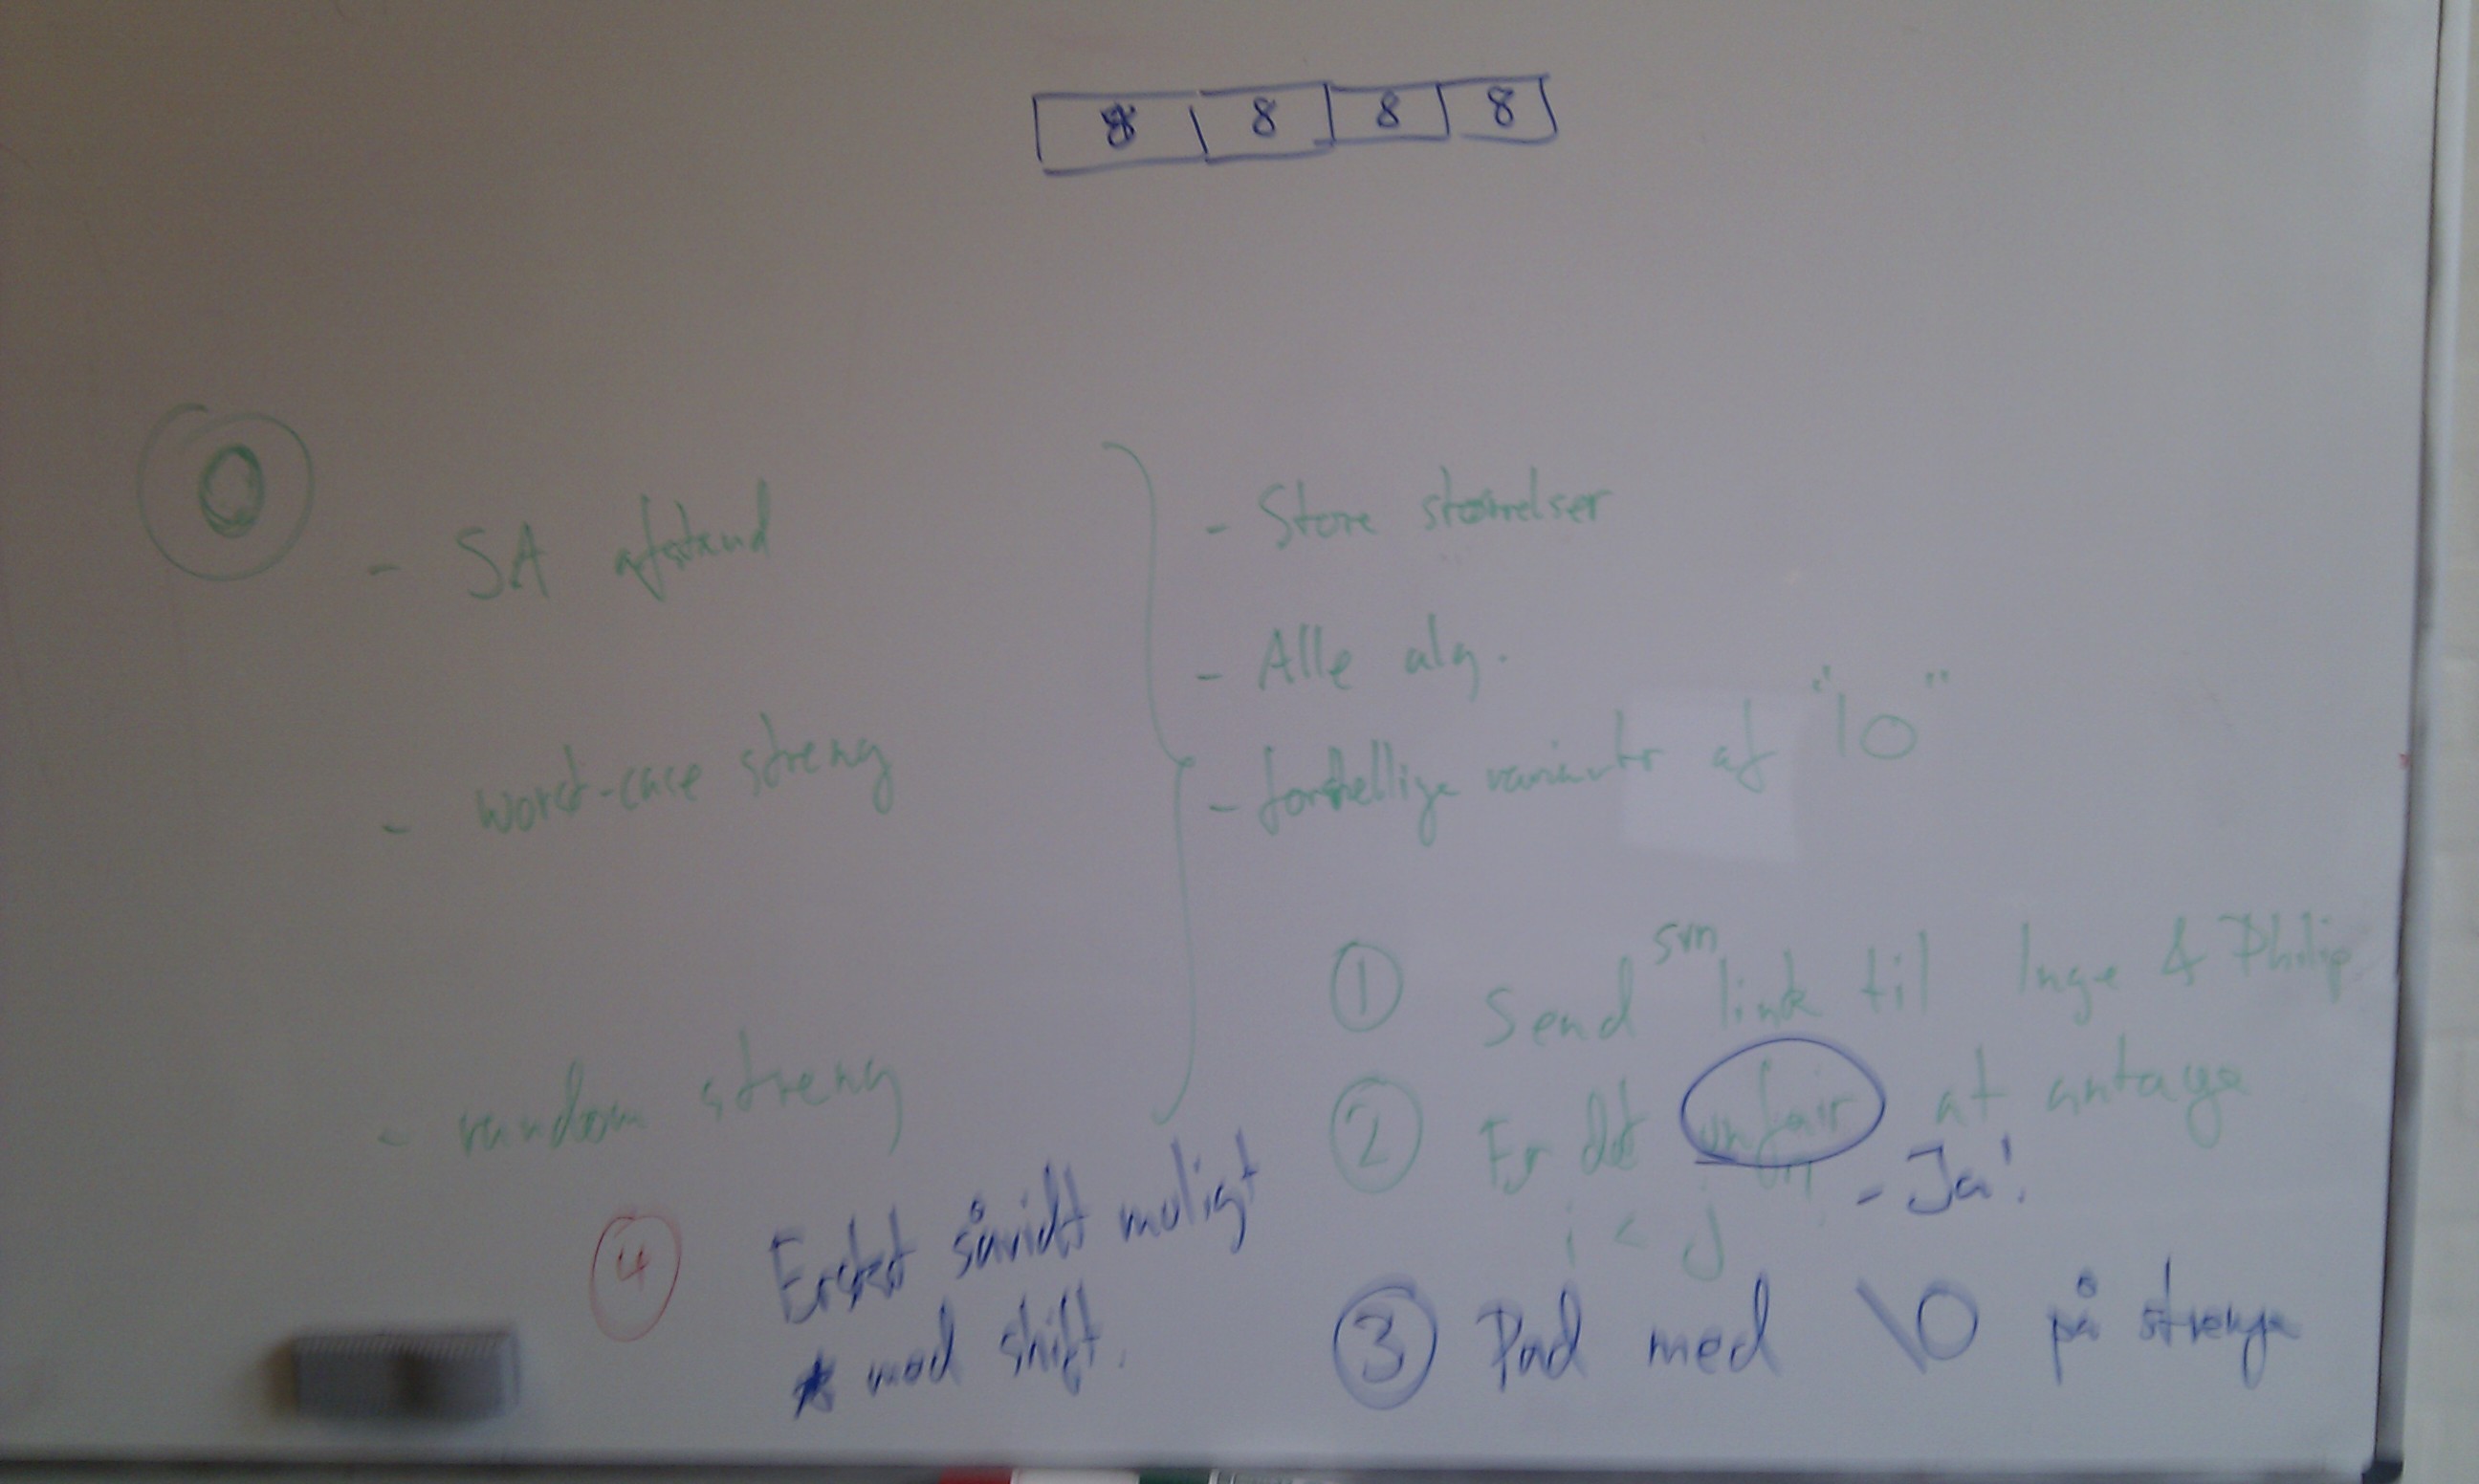 8 8 8 8
0
- SA afstand
- worst-case streng
- random streng
- Store størrelser
- Alle alg.
- forskellige varianter af "10"
① Send svn link til Inge & Philip
② Er det unfair at antage
i < j - Ja!
③ Pad med \0 på strenge
④ Erstat såvidt muligt
* med shift.